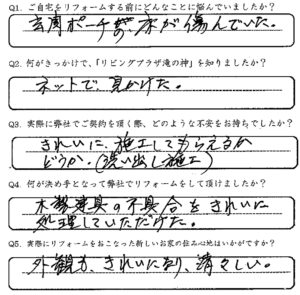 Q1. ご自宅をリフォームする前にどんなことに悩んでいましたか？
玄関ポーチの床が傷んでいた。
Q2. 何がきっかけで、「リビングプラザ滝の神」を知りましたか？
ネットで、見かけた。
Q3. 実際に弊社でご契約を頂く際、どのような不安をお持ちでしたか？
きれいに、施工してもらえるか
どうか。(洗い出し施工)
Q4. 何が決め手となって弊社でリフォームをして頂けましたか？
木製建具の不具合をきれいに
処理していただけた。
Q5. 実際にリフォームをおこなった新しいお家の住み心地はいかがですか？
外観も、きれいになり、清々しい。